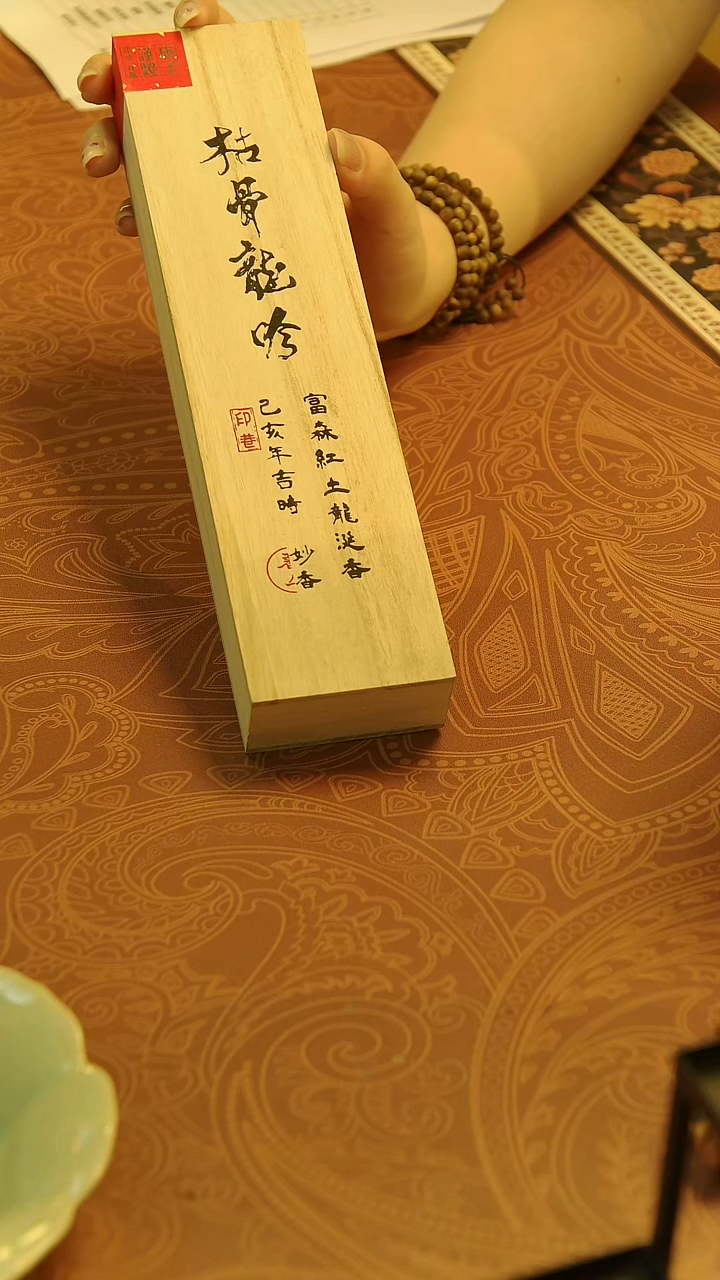 枯骨龍吟
富森紅土龍涎香
己亥年吉時
妙香
印巷